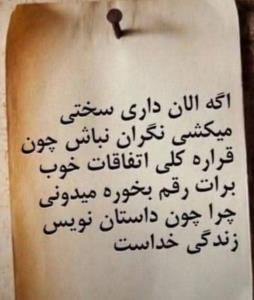 اگه الان داری سختی
میکشی نگران نباش چون
قراره کلی اتفاقات خوب
برات رقم بخوره میدونی
چرا چون داستان نویس
زندگی خداست